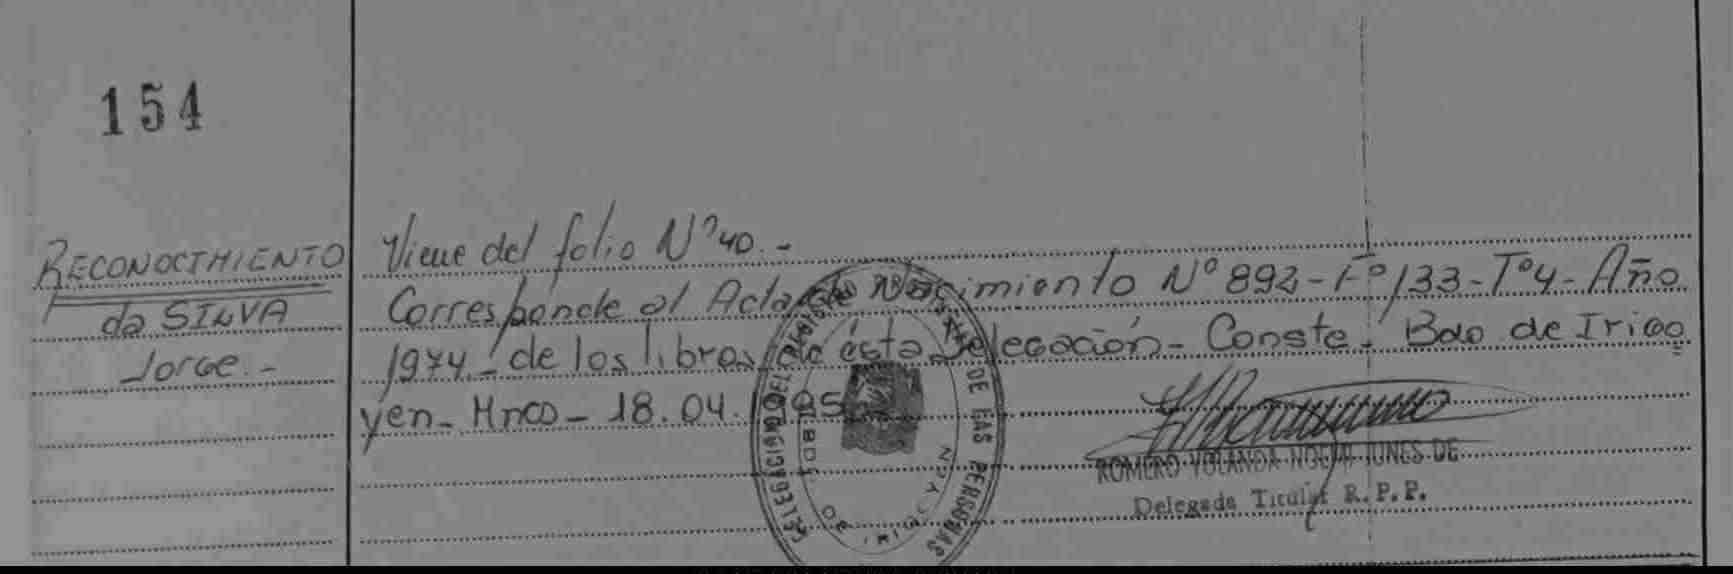 154
RECONOCIMIENTO
da SILVA
Jorge.-
Viene del folio Nº 40.-
Corresponde al Acta de Nacimiento Nº 892-Fº133-Tº4-Año
1974.- de los libros de ésta Delegación- Conste.- Bdo de Irigo
yen- Mnes- 18.04.1995
ROMERO YOLANDA NOEMI JUNES DE
Delegada Titular R.P.P.
DE LAS PERSONAS
DE IRIGOYEN